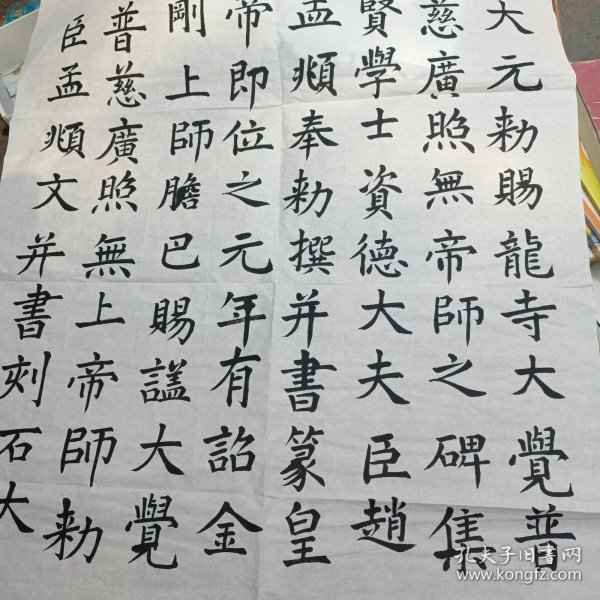 大元勅賜龍寺大覺普
慈廣照無帝師之碑集
賢學士資德大夫臣趙
孟頫奉勅撰并書篆皇
帝即位之元年有詔金
剛上師膽巴賜謚大覺
普慈廣照無上帝師勅
臣孟頫文并書刻石大
孔夫子旧书网
www.kongfz.com